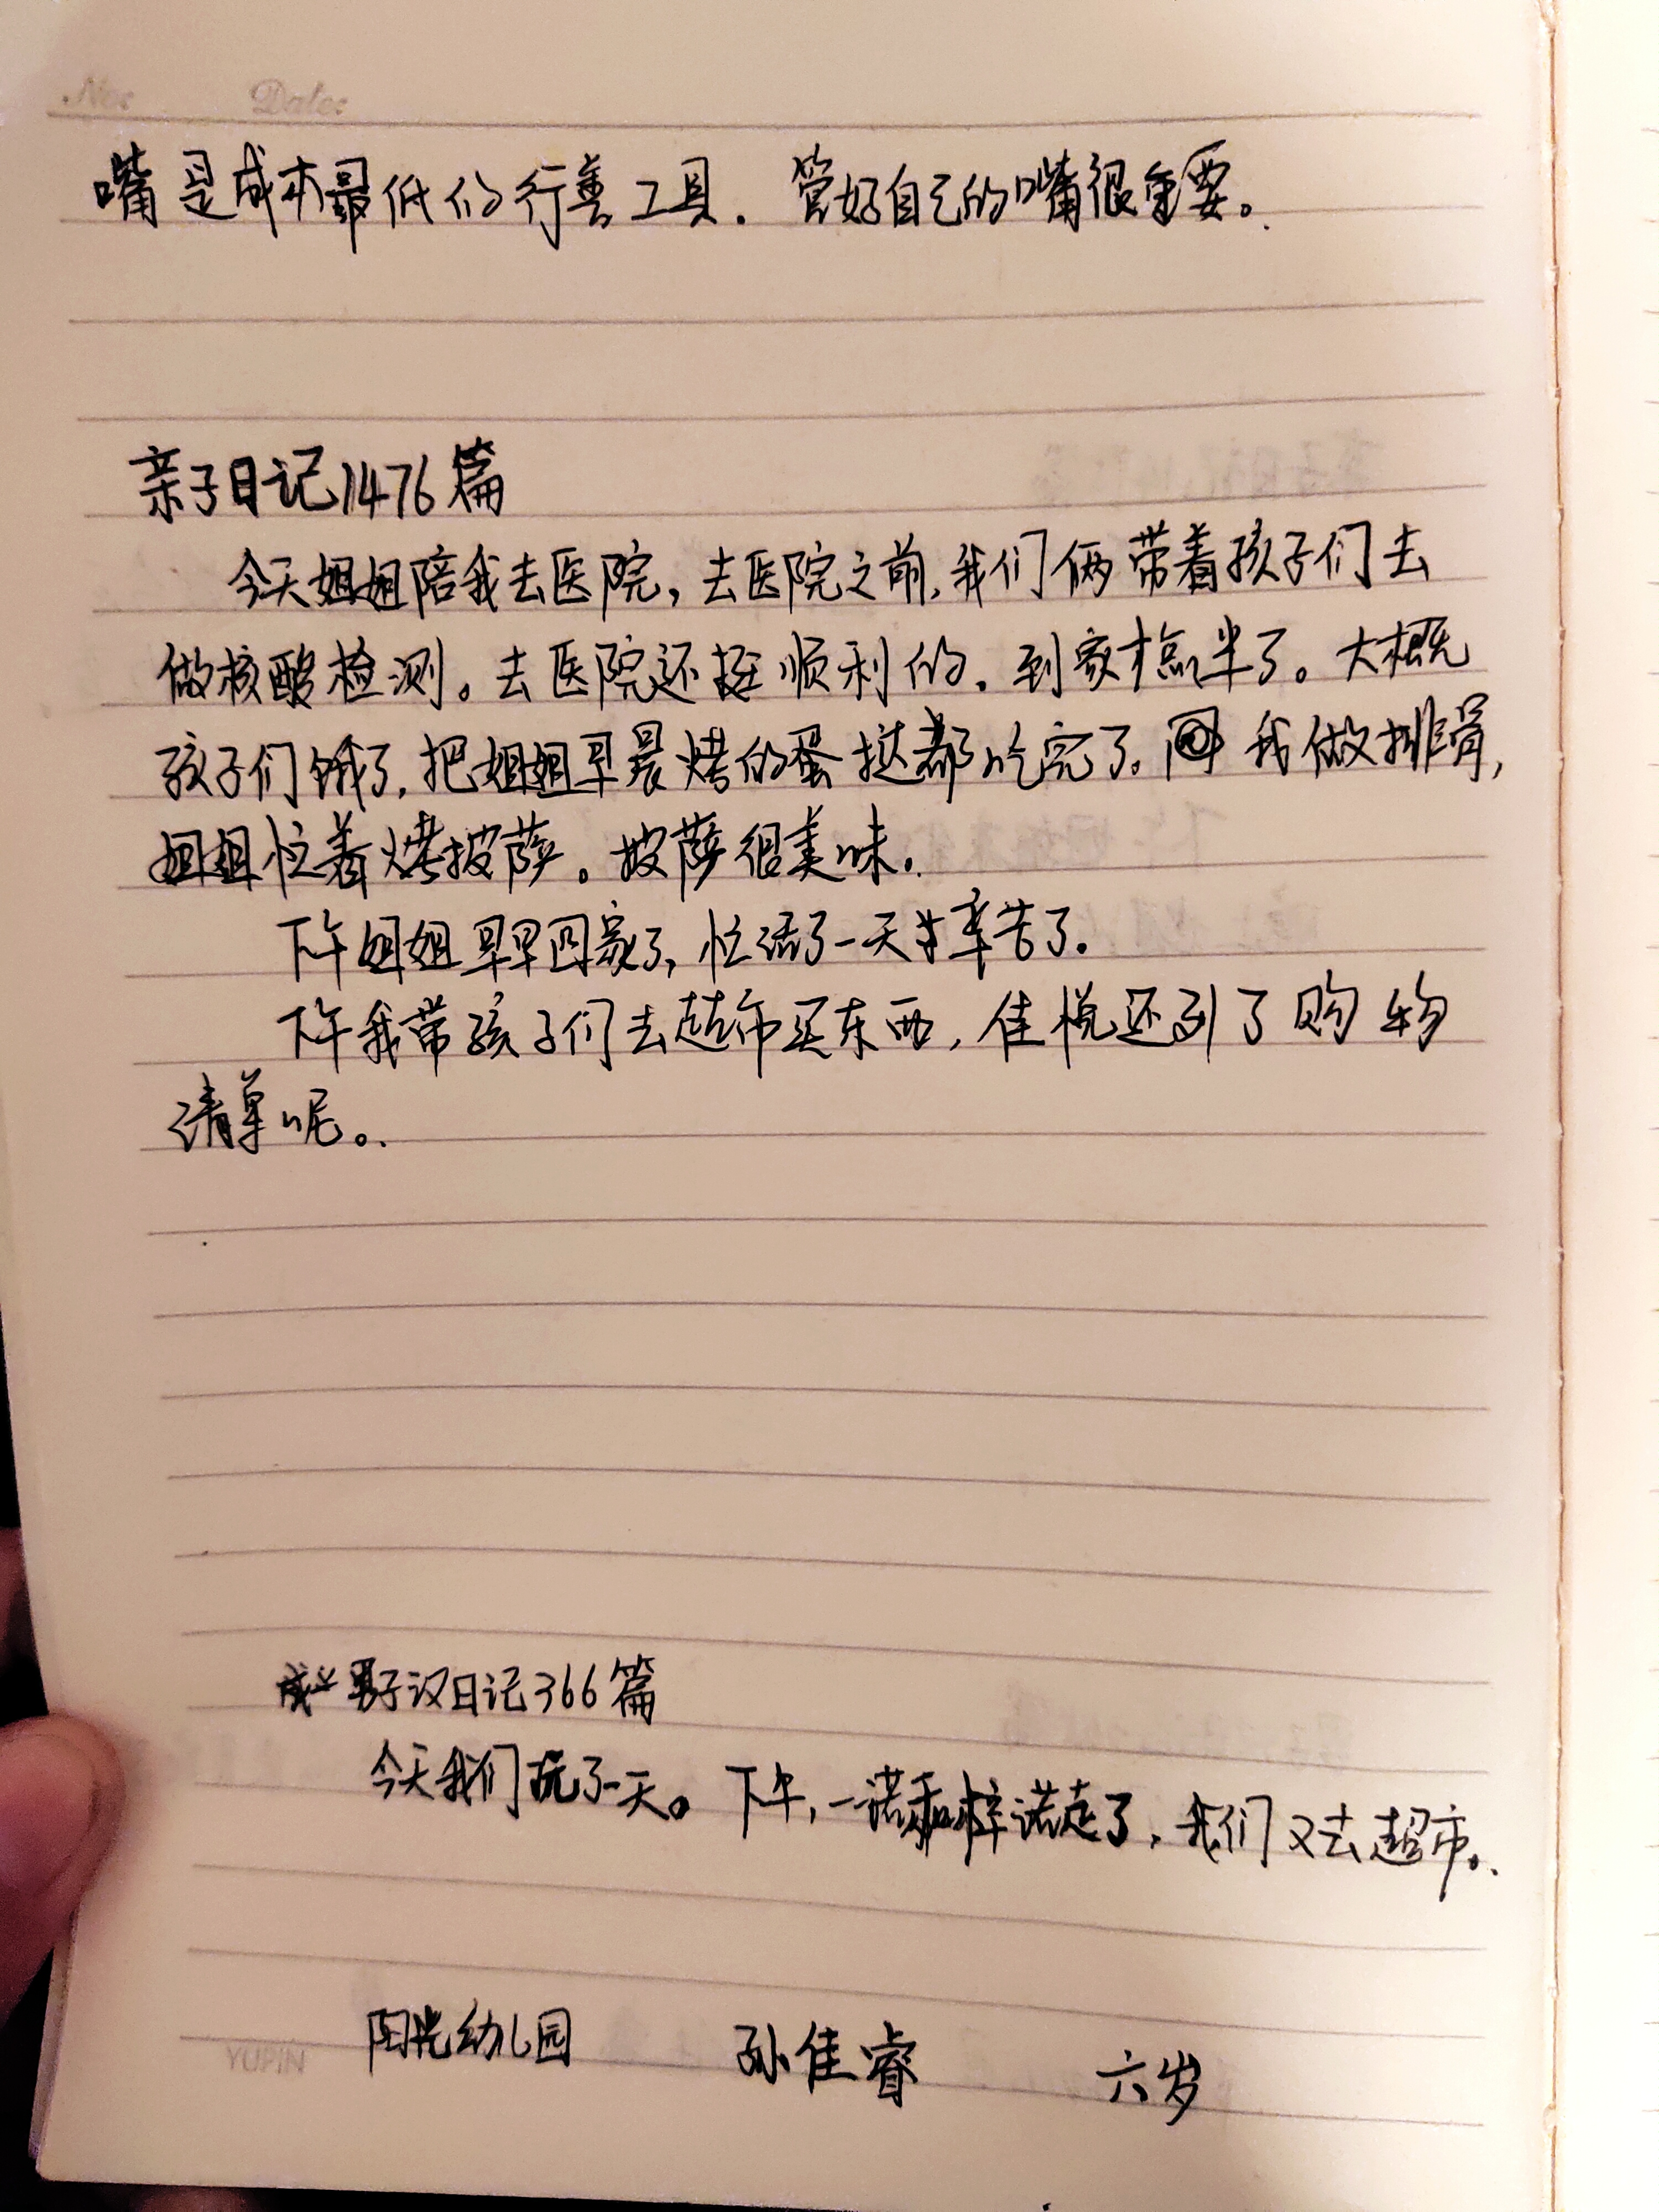 No: Date:
嘴是成本最低的行善工具. 管好自己的嘴很重要。
亲子日记1476篇
今天姐姐陪我去医院,去医院之前,我们俩带着孩子们去
做核酸检测。去医院还挺顺利的.到家十点半了。大概
孩子们饿了,把姐姐早晨烤的蛋挞都吃完了。我做排骨,
姐姐忙着烤披萨。披萨很美味.
下午姐姐早早回家了,忙活了一天辛苦了.
下午我带孩子们去超市买东西,佳悦还列了购物
清单呢。
男子汉日记366篇
今天我们玩了一天。下午,一诺和梓诺走了,我们又去超市。
阳光幼儿园 孙佳睿 六岁
YUPIN